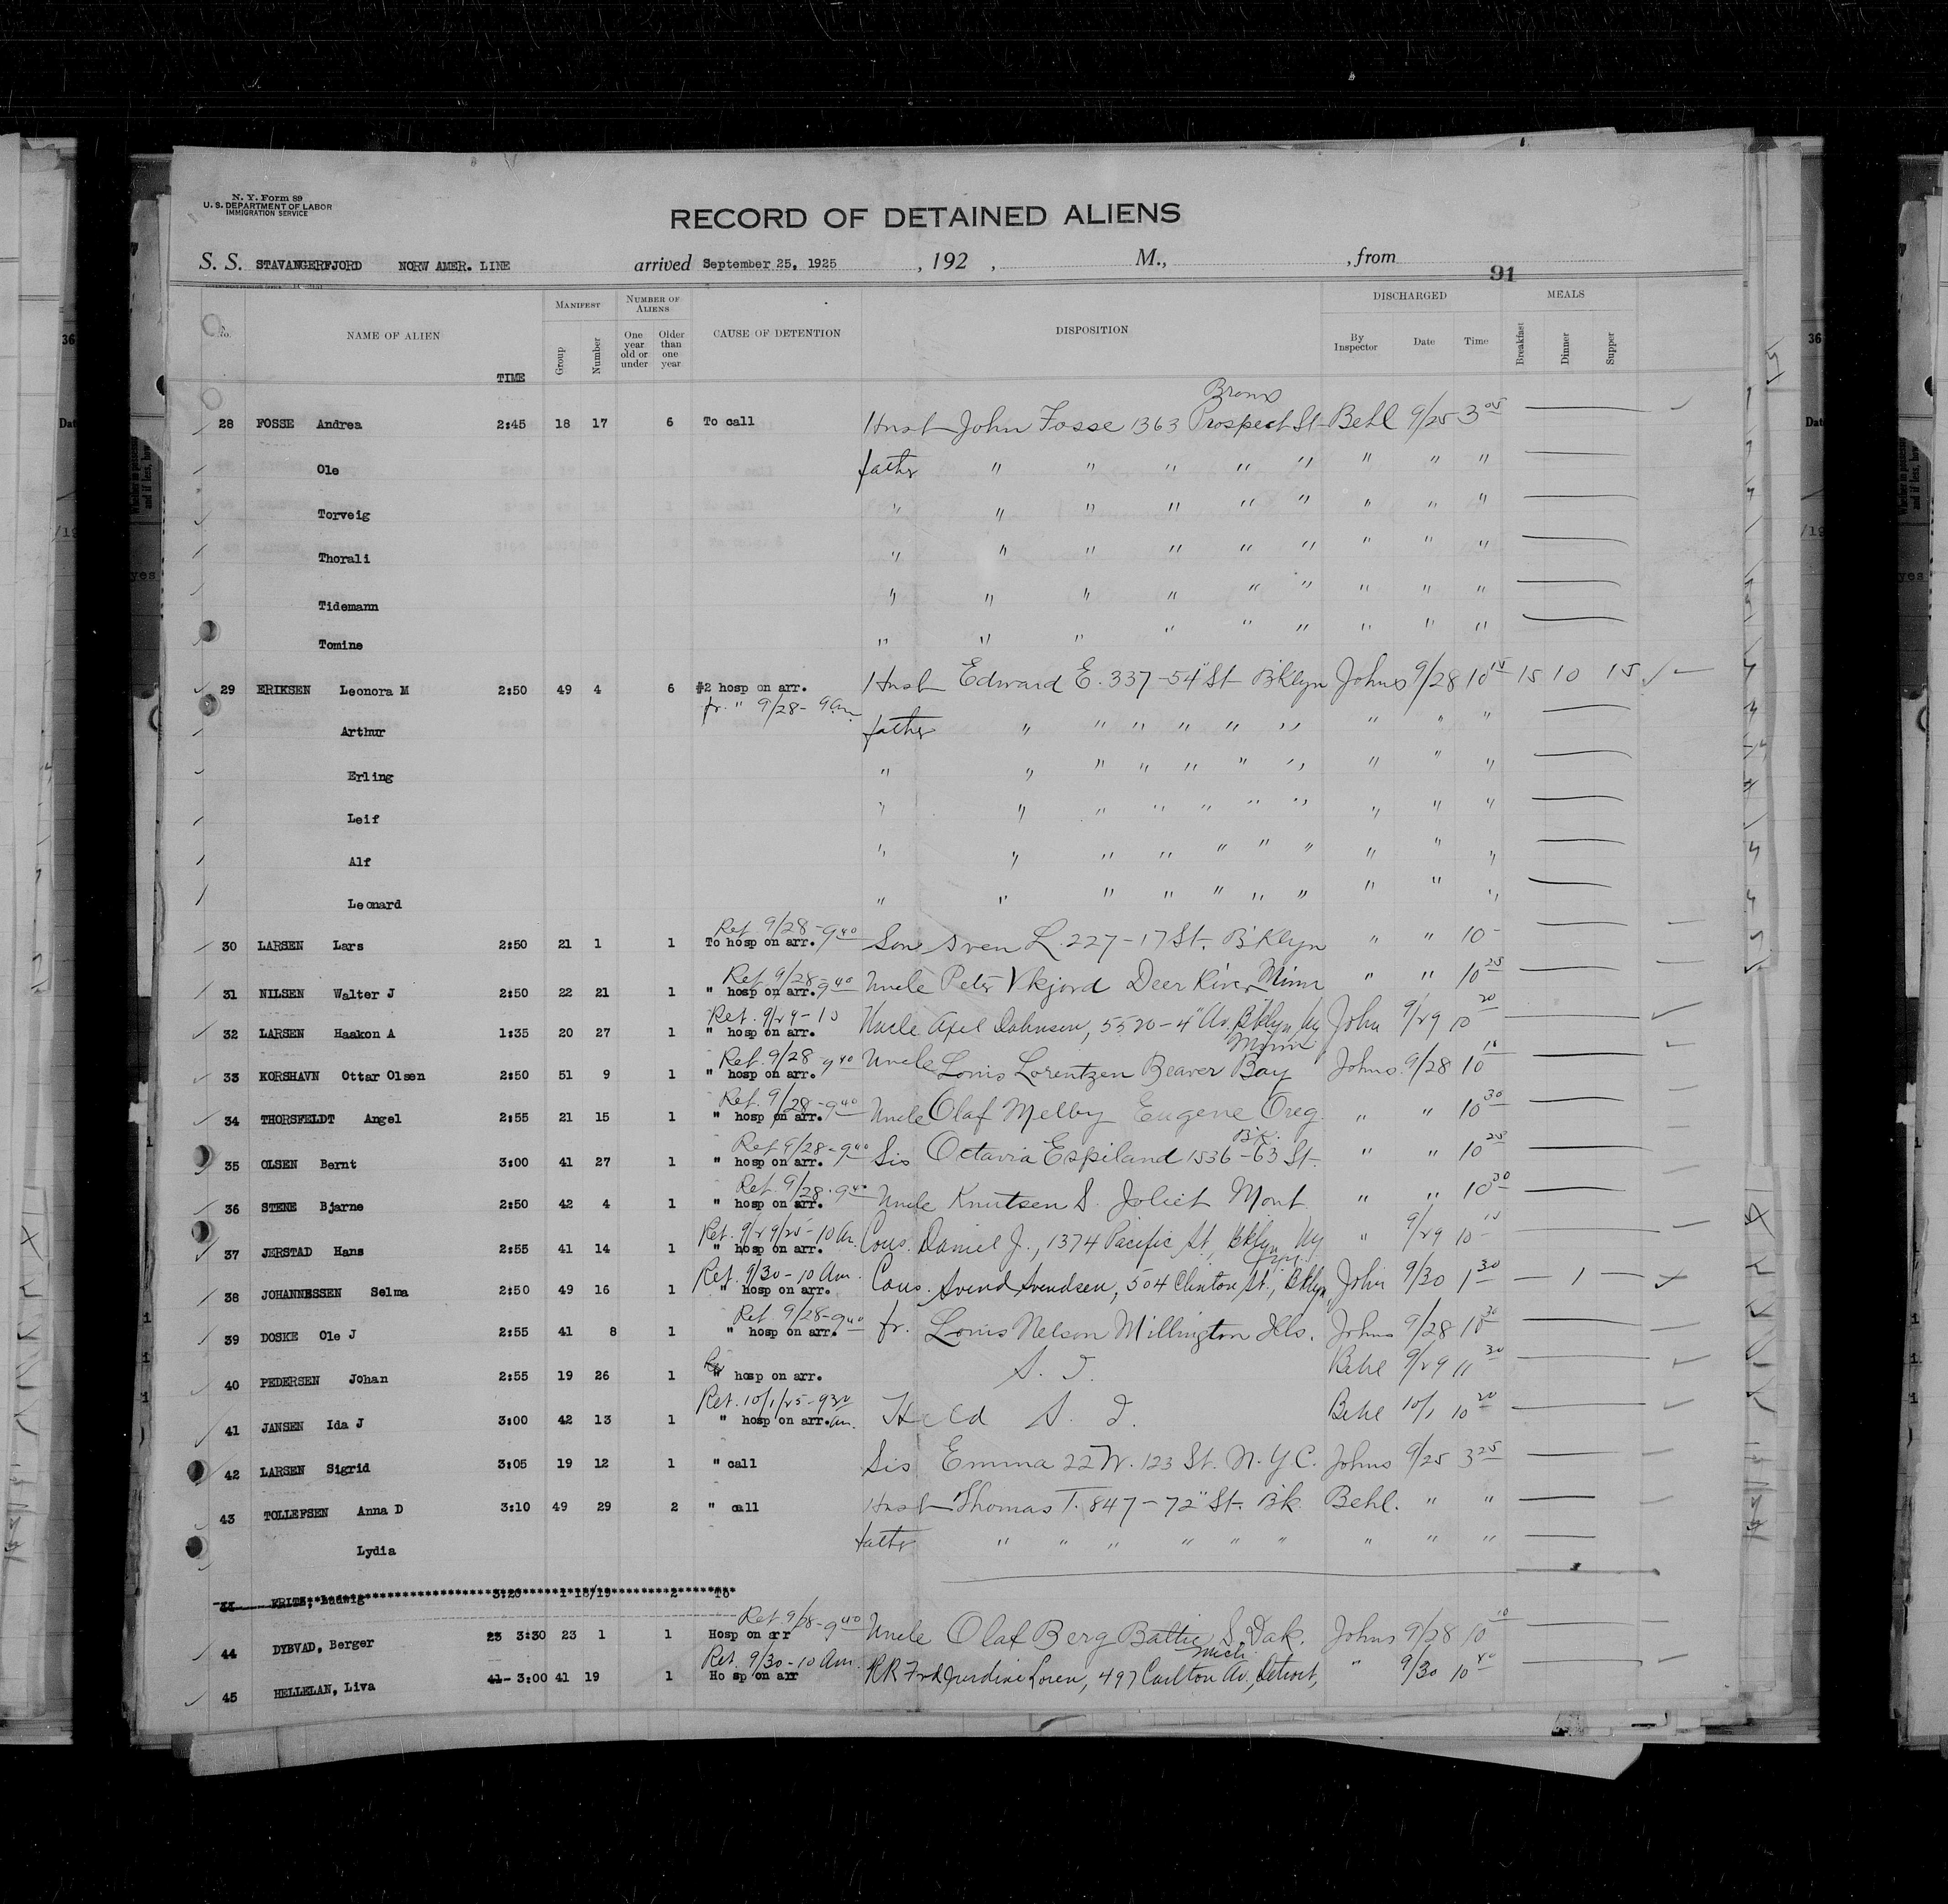 N. Y. Form 89
U. S. DEPARTMENT OF LABOR
IMMIGRATION SERVICE
RECORD OF DETAINED ALIENS
S. S. STAVANGERFJORD NORW AMER. LINE arrived September 25, 1925 , 192 , M., , from
91
No. NAME OF ALIEN TIME MANIFEST Group Number NUMBER OF ALIENS One year old or under Older than one year CAUSE OF DETENTION DISPOSITION DISCHARGED By Inspector Date Time MEALS Breakfast Dinner Supper
Bronx
28 FOSSE Andrea 2:45 18 17 6 To call Husb John Fosse 1363 Prospect St Behl 9/25 3 05
Ole father " " " " " " " "
Torveig " " " " " " " " "
Thorali " " " " " " " " "
Tidemann " " " " " " " " "
Tomine " " " " " " " " "
29 ERIKSEN Leonora M 2:50 49 4 6 #2 hosp on arr. Husb Edward E. 337-54" St B'klyn Johns 9/28 10 15 15 10 15
fr. " 9/28 - 9 am
Arthur father " " " " " " " " "
Erling " " " " " " " " " "
Leif " " " " " " " " " "
Alf " " " " " " " " " "
Leonard " " " " " " " " " "
Ret. 9/28-9 40
30 LARSEN Lars 2:50 21 1 1 To hosp on arr. Son Sven L. 227-17 St. B'klyn " " 10 -
Ret 9/28-9 40
31 NILSEN Walter J 2:50 22 21 1 " hosp on arr. Uncle Peter Vkjord Deer River Minn " " 10 25
Ret. 9/29-10
32 LARSEN Haakon A 1:35 20 27 1 " hosp on arr. Uncle Axel Dahnsen, 5520-4" Av. B'klyn Ny John 9/29 10 20
Ret. 9/28-9 40 Minn
33 KORSHAVN Ottar Olsen 2:50 51 9 1 " hosp on arr. Uncle Louis Lorentzen Beaver Bay Johns 9/28 10
Ret. 9/28-9 40
34 THORSFELDT Angel 2:55 21 15 1 " hosp on arr. Uncle Olaf Melby Eugene Oreg. " " 10 30
Ret 9/28-9 40 B'k.
35 OLSEN Bernt 3:00 41 27 1 " hosp on arr. Sis Octavia Espiland 1536-63 St. " " 10 25
Ret. 9/28-9 40
36 STENE Bjarne 2:50 42 4 1 " hosp on arr. Uncle Knutsen S. Joliet Mont " " 10 30
Ret. 9/29/25-10 Am.
37 JERSTAD Hans 2:55 41 14 1 " hosp on arr. Cous. Daniel J., 1374 Pacific St, Bklyn Ny " 9/29 10
Ret. 9/30-10 Am.
38 JOHANNESSEN Selma 2:50 49 16 1 " hosp on arr. Cous. Svend Svendsen, 504 Clinton St., Bklyn John 9/30 1 30 — 1 —
Ret. 9/28-9 40
39 DOSKE Ole J 2:55 41 8 1 " hosp on arr. fr. Louis Nelson Millington Ills. Johns 9/28 10
40 PEDERSEN Johan 2:55 19 26 1 " hosp on arr. S. I. Behl 9/29 11 30
Ret. 10/1/25-9 30 am.
41 JANSEN Ida J 3:00 42 13 1 " hosp on arr. Held S. I. Behl 10/1 10 20
42 LARSEN Sigrid 3:05 19 12 1 " call Sis Emma 22 W. 123 St. N.Y.C. Johns 9/25 3 25
43 TOLLEFSEN Anna D 3:10 49 29 2 " call Husb Thomas T. 847-72" St. B'k Behl. " "
Lydia father " " " " " " " " "
44 FRITZ, Ludwig 3:20 1 18/19 2 To
Ret 9/28-9 40
44 DYBVAD, Berger 23 3:30 23 1 1 Hosp on arr Uncle Olaf Berg S. Dak. Johns 9/28 10 10
Ret. 9/30-10 Am. Mich.
45 HELLELAN, Liva 41- 3:00 41 19 1 Hosp on arr Loren, 497 Carlton Av., Detroit, " 9/30 10 40